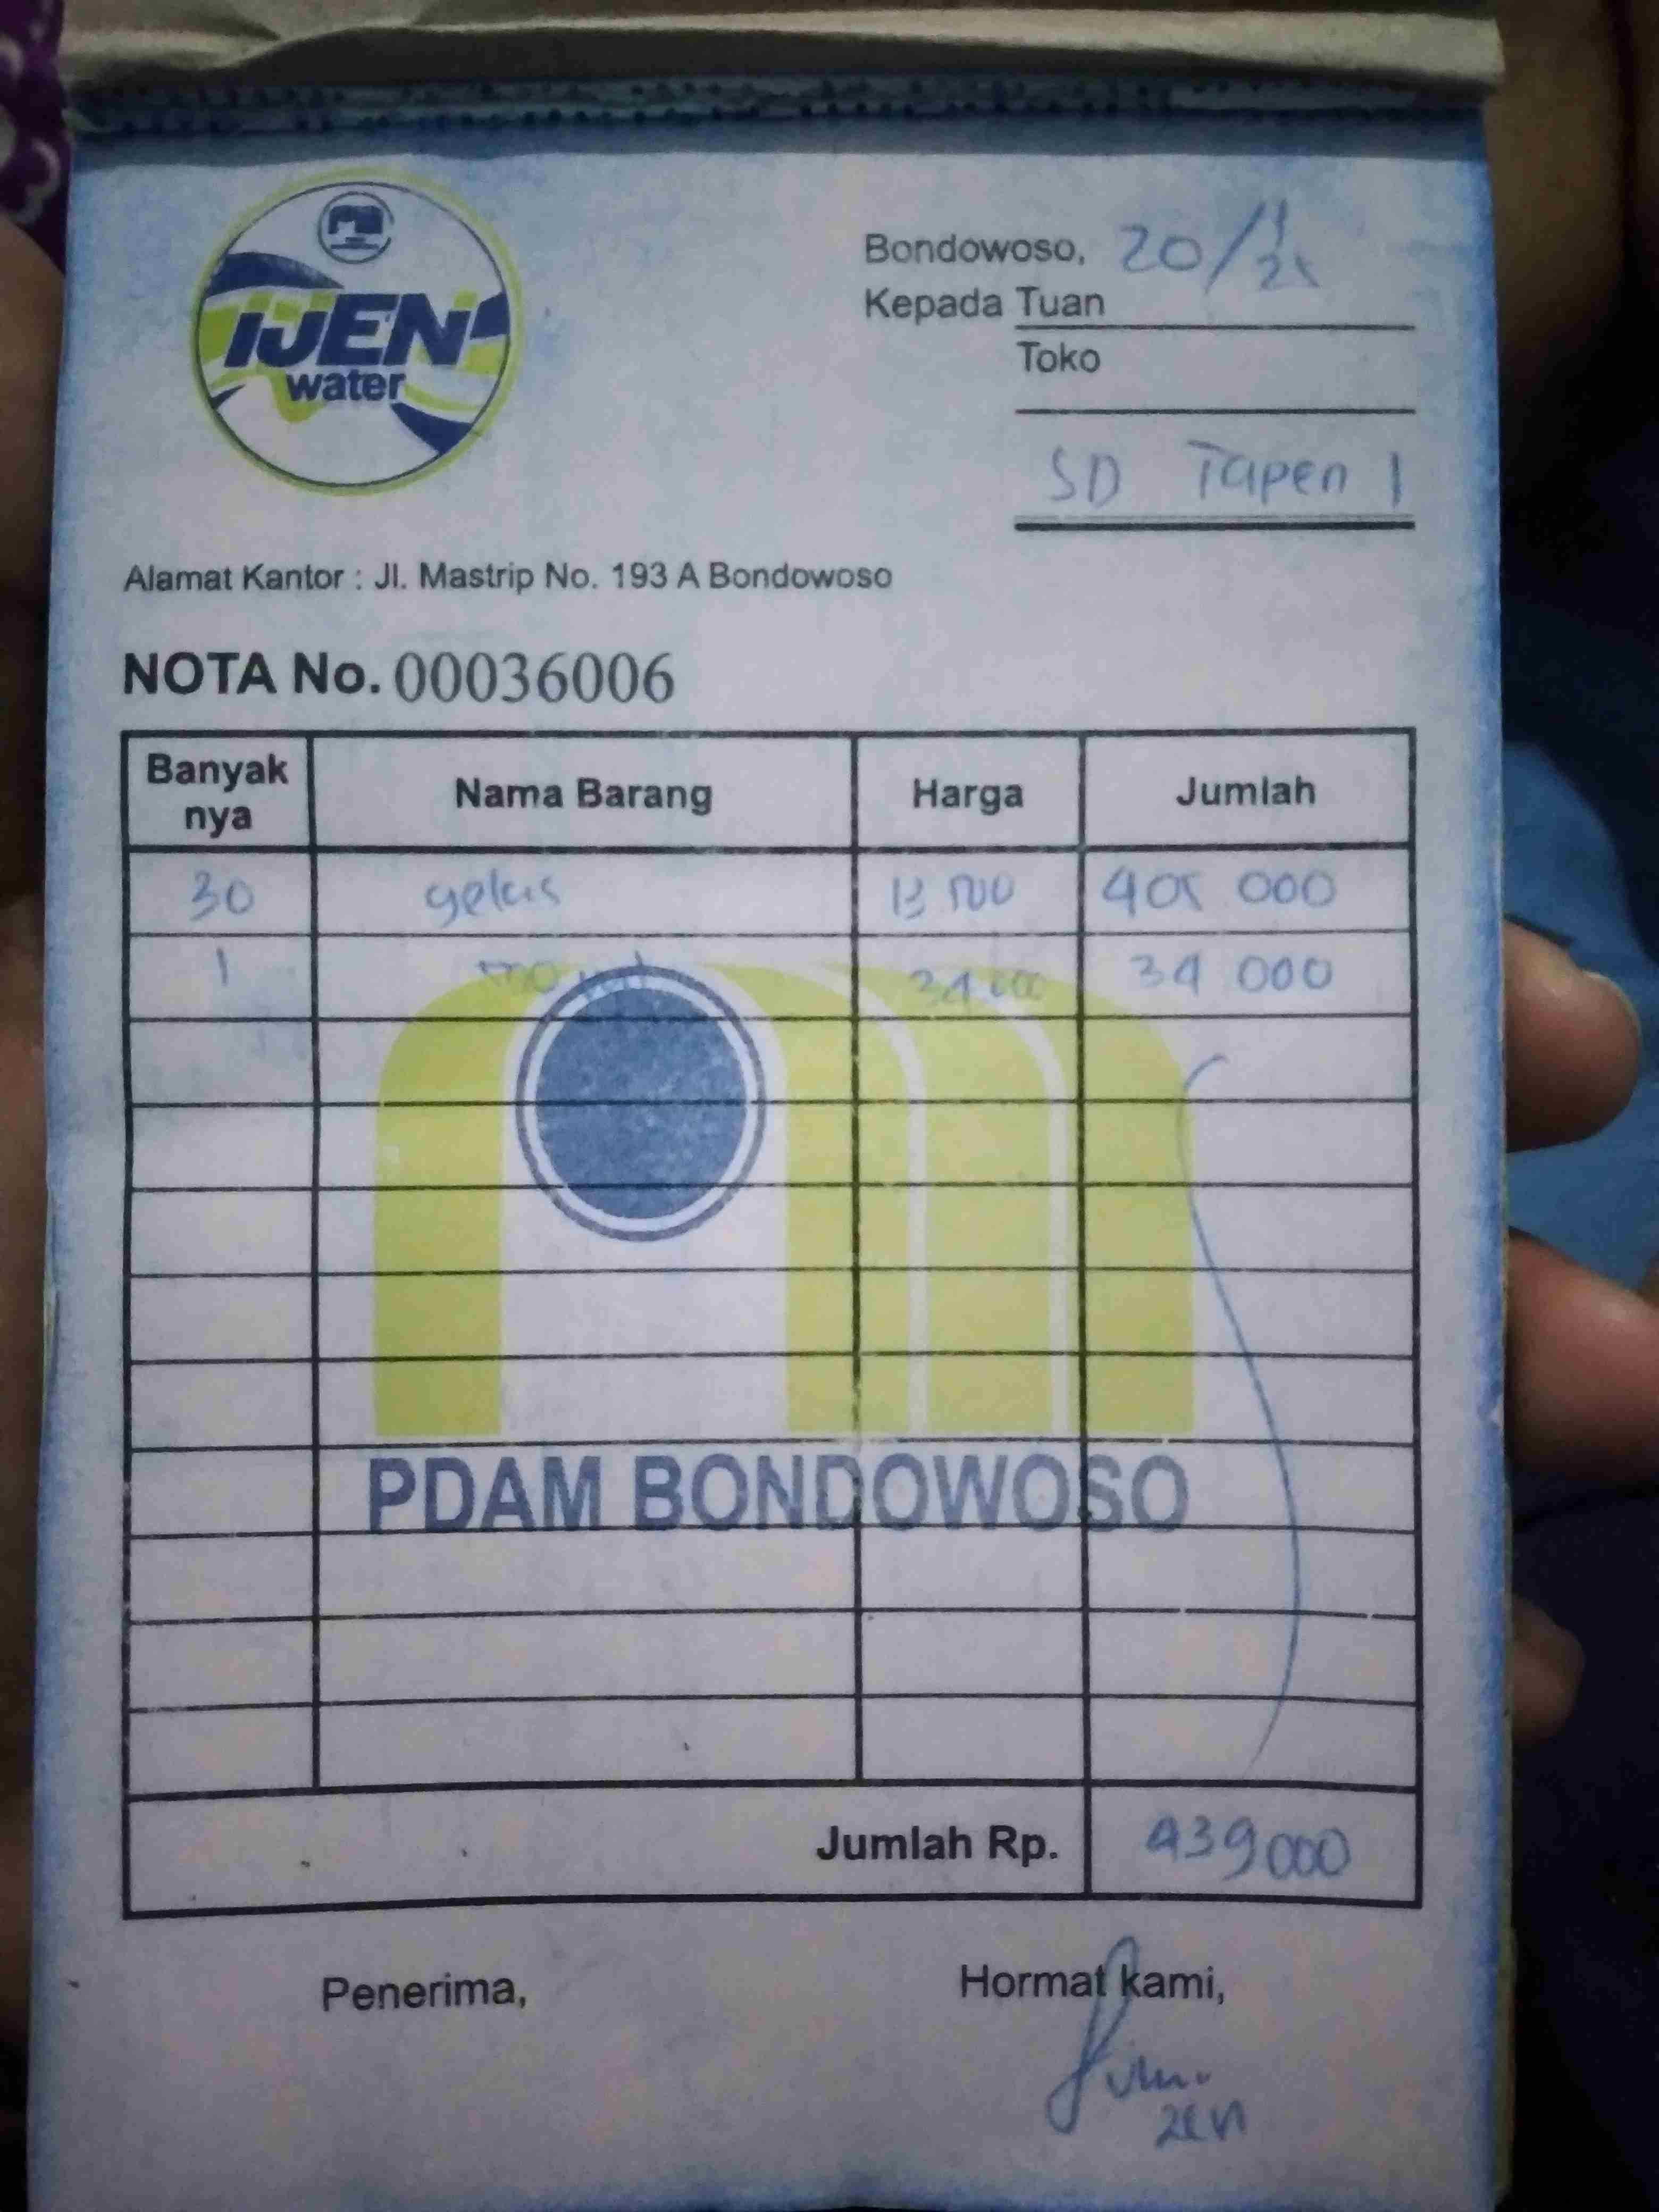 IJEN
water
Bondowoso, 20/11/25
Kepada Tuan
Toko
SD Tapen 1
Alamat Kantor : Jl. Mastrip No. 193 A Bondowoso
NOTA No. 00036006
Banyak nya Nama Barang Harga Jumlah
30 gelas 13 500 405 000
1 34 000 34 000
PDAM BONDOWOSO
Jumlah Rp. 439 000
Penerima, Hormat kami,